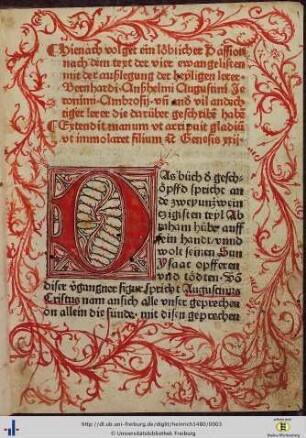 Hienach volget ein löblicher Passion
nach dem text der vier ewangelisten
mit der auszlegung der heyligen lerer
Bernhardi Anshelmi Augustini Je
ronimi Ambrosij vn̄ and vil andech
tiger lerer die darüber geschribē habē
Extendit manum vt arripuit gladiū
vt immolaret filium Genesis xxij
DAs büch d̕ gesch
öpffd spricht an
dē zweyunzwein
zigisten teyl Ab
raham hūbe auff
sein handt vnnd
wolt seinen Sun
ysaac opfferen
vnd tödten
diser vgangner figur spricht Augustinus
Cristus nam ansich alle vnser geprechen
on allein die sünde mit disen geprechen
http://dl.ub.uni-freiburg.de/diglit/heinrich1480/0003
© Universitätsbibliothek Freiburg